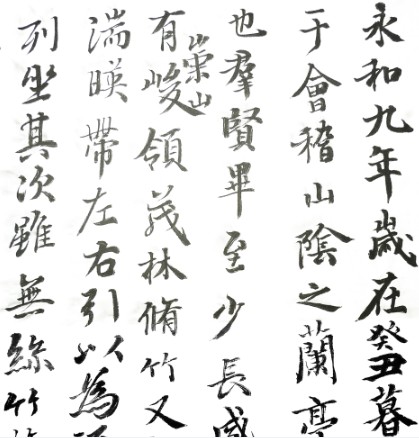 永和九年歲在癸丑暮
于會稽山陰之蘭亭
也羣賢畢至少長咸
有崇山峻領茂林脩竹又
湍暎帶左右引以為
列坐其次雖無絲竹